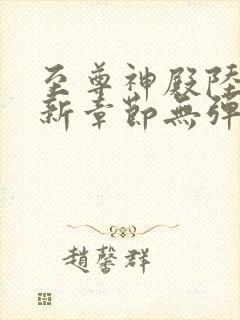 至尊神殿陸
新章節無彈
趙馨群